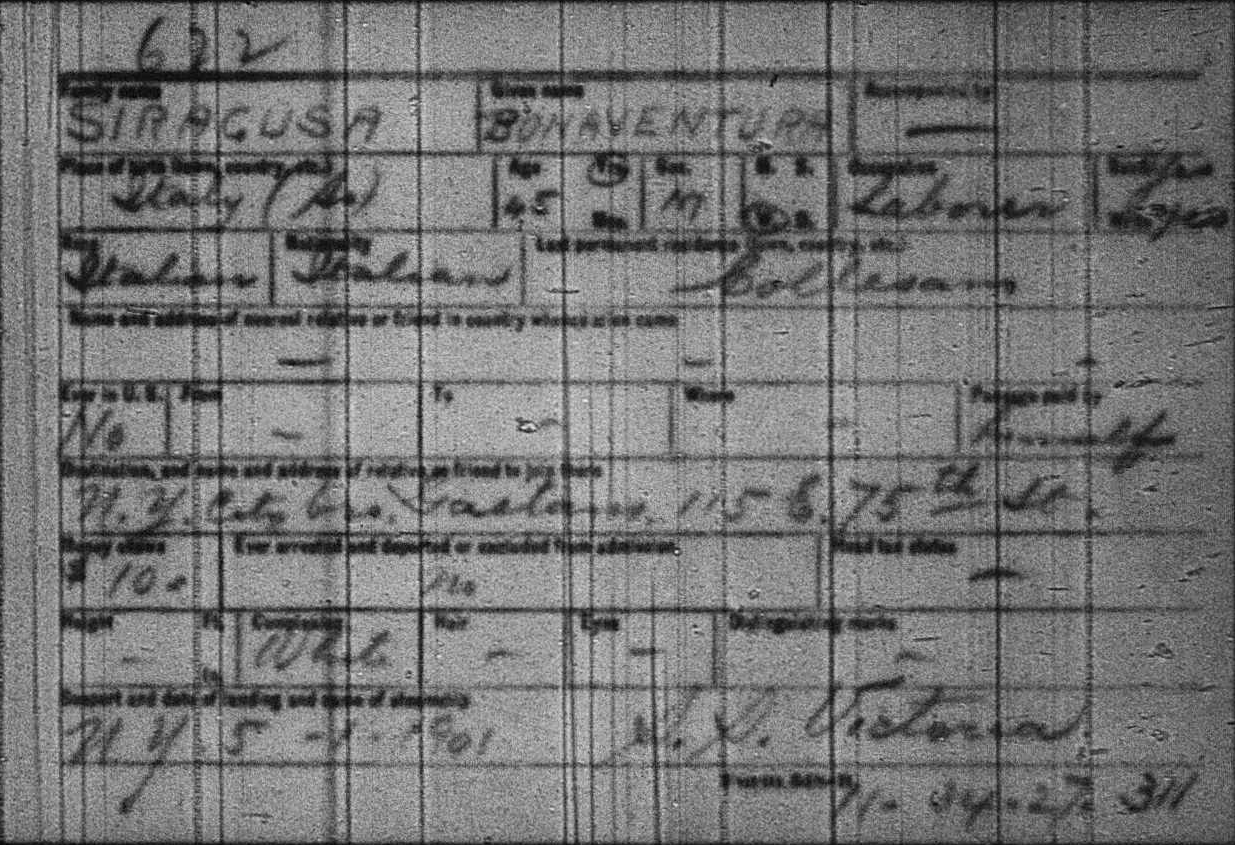 622
Family name Given name Accompanied by
SIRACUSA BONAVENTURA —
Place of birth (town, country, etc.) Age Yrs. Sex M. S. Occupation Read yes
Italy (So) 45 Mos. M W. D. Laborer Write yes
Race Nationality Last permanent residence (town, country, etc.)
Italian Italian Collesano
Name and address of nearest relative or friend in country whence alien came
— — -
Ever in U.S. From To Where Passage paid by
No - - - himself
Destination, and name and address of relative or friend to join there
N.Y. City 115 E. 75th St.
Money shown Ever arrested and deported or excluded from admission Head tax status
$ 10. No —
Height Ft. Complexion Hair Eyes Distinguishing marks
- In. White - - -
Seaport and date of landing and name of steamship
N.Y 5 - 1901 S.S. Victoria
311